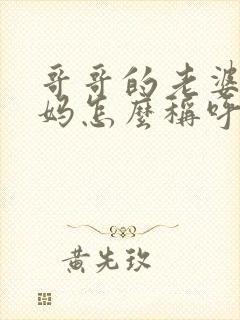 哥哥的老婆
妈怎麼稱呼
黄先玫